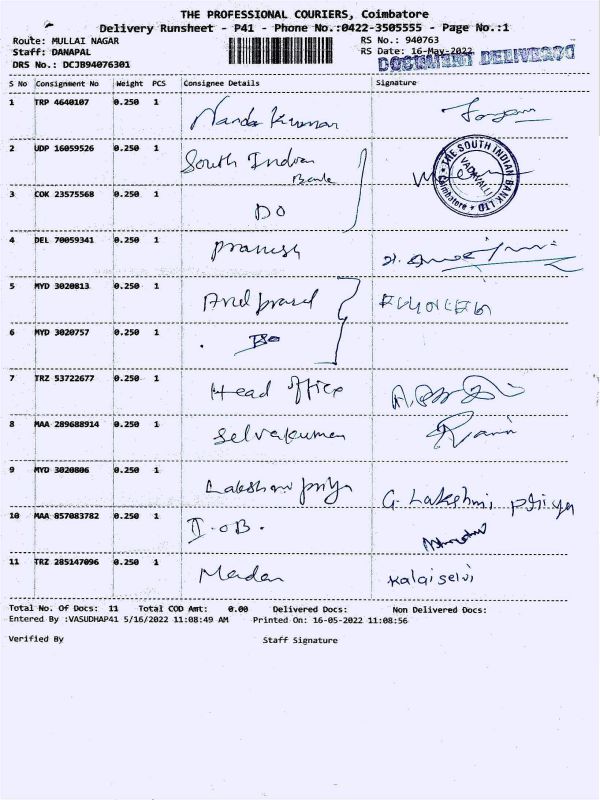 THE PROFESSIONAL COURIERS, Coimbatore
Delivery Runsheet - P41 - Phone No.:0422-3505555 - Page No.:1
Route: MULLAI NAGAR RS No.: 940763
Staff: DANAPAL RS Date: 16-May-2022
DRS No.: DCJB94076301 DOCUMENT DELIVERED
S No Consignment No Weight PCS Consignee Details Signature
1 TRP 4640107 0.250 1 Nanda Kumar
2 UDP 16059526 0.250 1 South Indian Bank
THE SOUTH INDIAN BANK LTD VADAVALLI Coimbatore
3 COK 23575568 0.250 1 DO
4 DEL 70059341 0.250 1 Pranesh
5 MYD 3020813 0.250 1
6 MYD 3020757 0.250 1 Do
7 TRZ 53722677 0.250 1 Head office
8 MAA 289688914 0.250 1 Selvakumar
9 MYD 3020806 0.250 1 Lakshmi priya G. Lakshmi priya
10 MAA 857083782 0.250 1 I.O.B.
11 TRZ 285147096 0.250 1 Madan Kalaiselvi
Total No. Of Docs: 11 Total COD Amt: 0.00 Delivered Docs: Non Delivered Docs:
Entered By :VASUDHAP41 5/16/2022 11:08:49 AM Printed On: 16-05-2022 11:08:56
Verified By Staff Signature